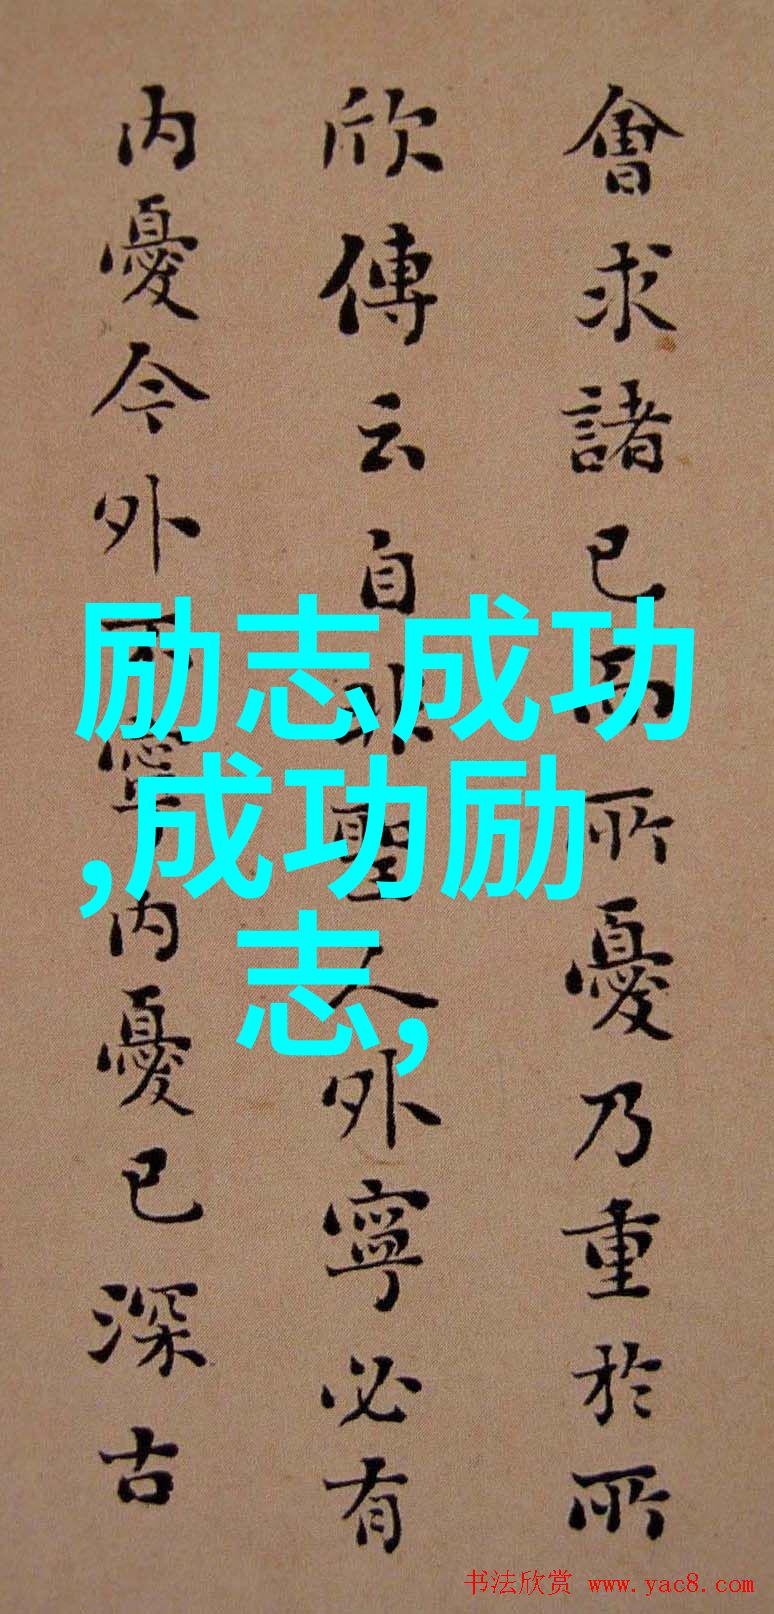 會求諸己而所憂乃重於所
欣傳云自非聖人外寧必有
内憂今外不寧内憂已深古
励志成功
,成功励
志,
书法欣赏 www.yac8.com